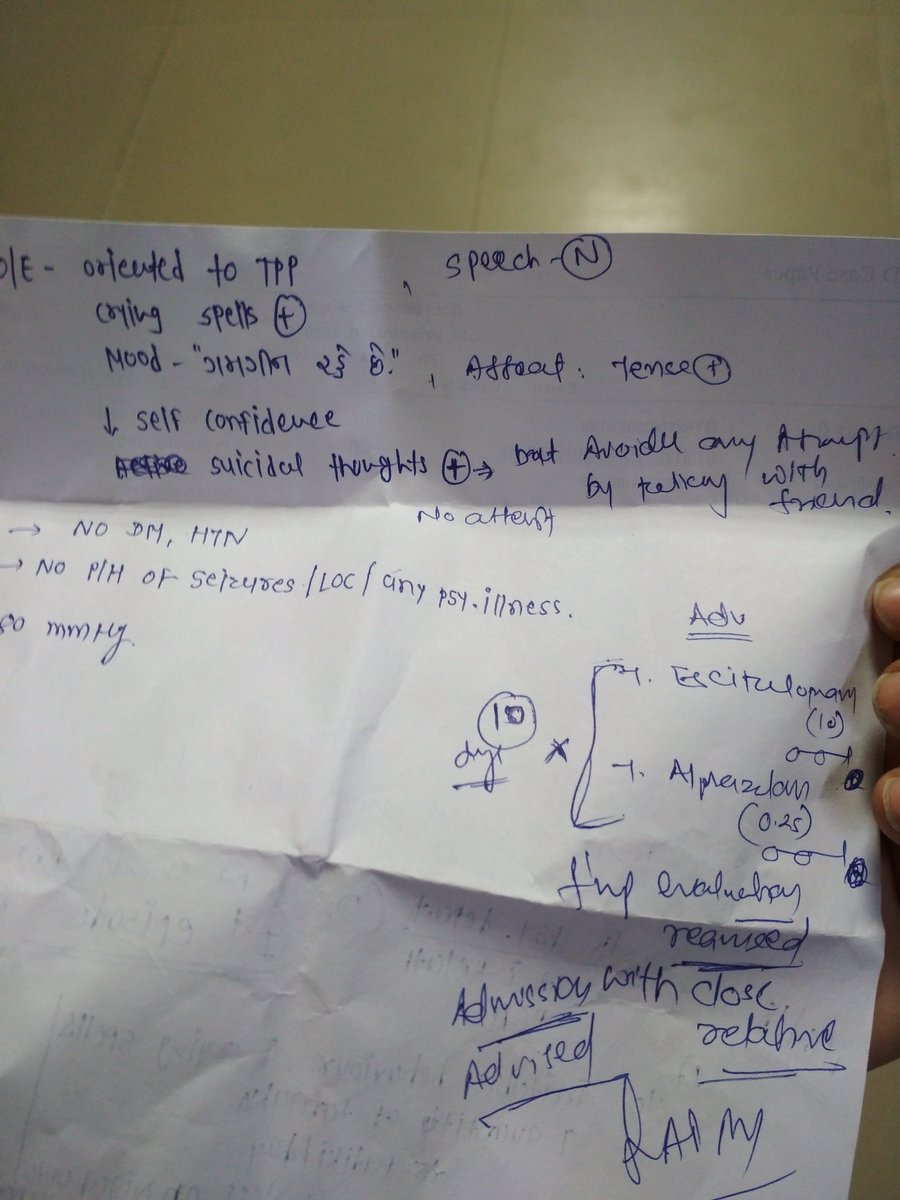 O/E - oriented to TPP , speech - N
crying spells +
Mood - "ગમગીન રહે છે." , Affeat : Tence +
↓ self confidence
suicidal thoughts + → but Avoided any Attempt
by talking with
friend.
No attempt
→ NO DM, HTN
→ NO P/H OF seizures / LOC / any psy. illness.
80 mmHg.
Adv
T. Escitalopram
(10)
10
days x
T. Alprazolam
(0.25)
f/up evaluation
required
Admission with close
relative
Advised